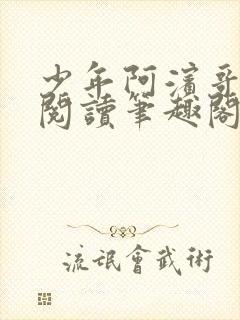 少年阿濱哥
閱讀筆趣閣
流氓會武術